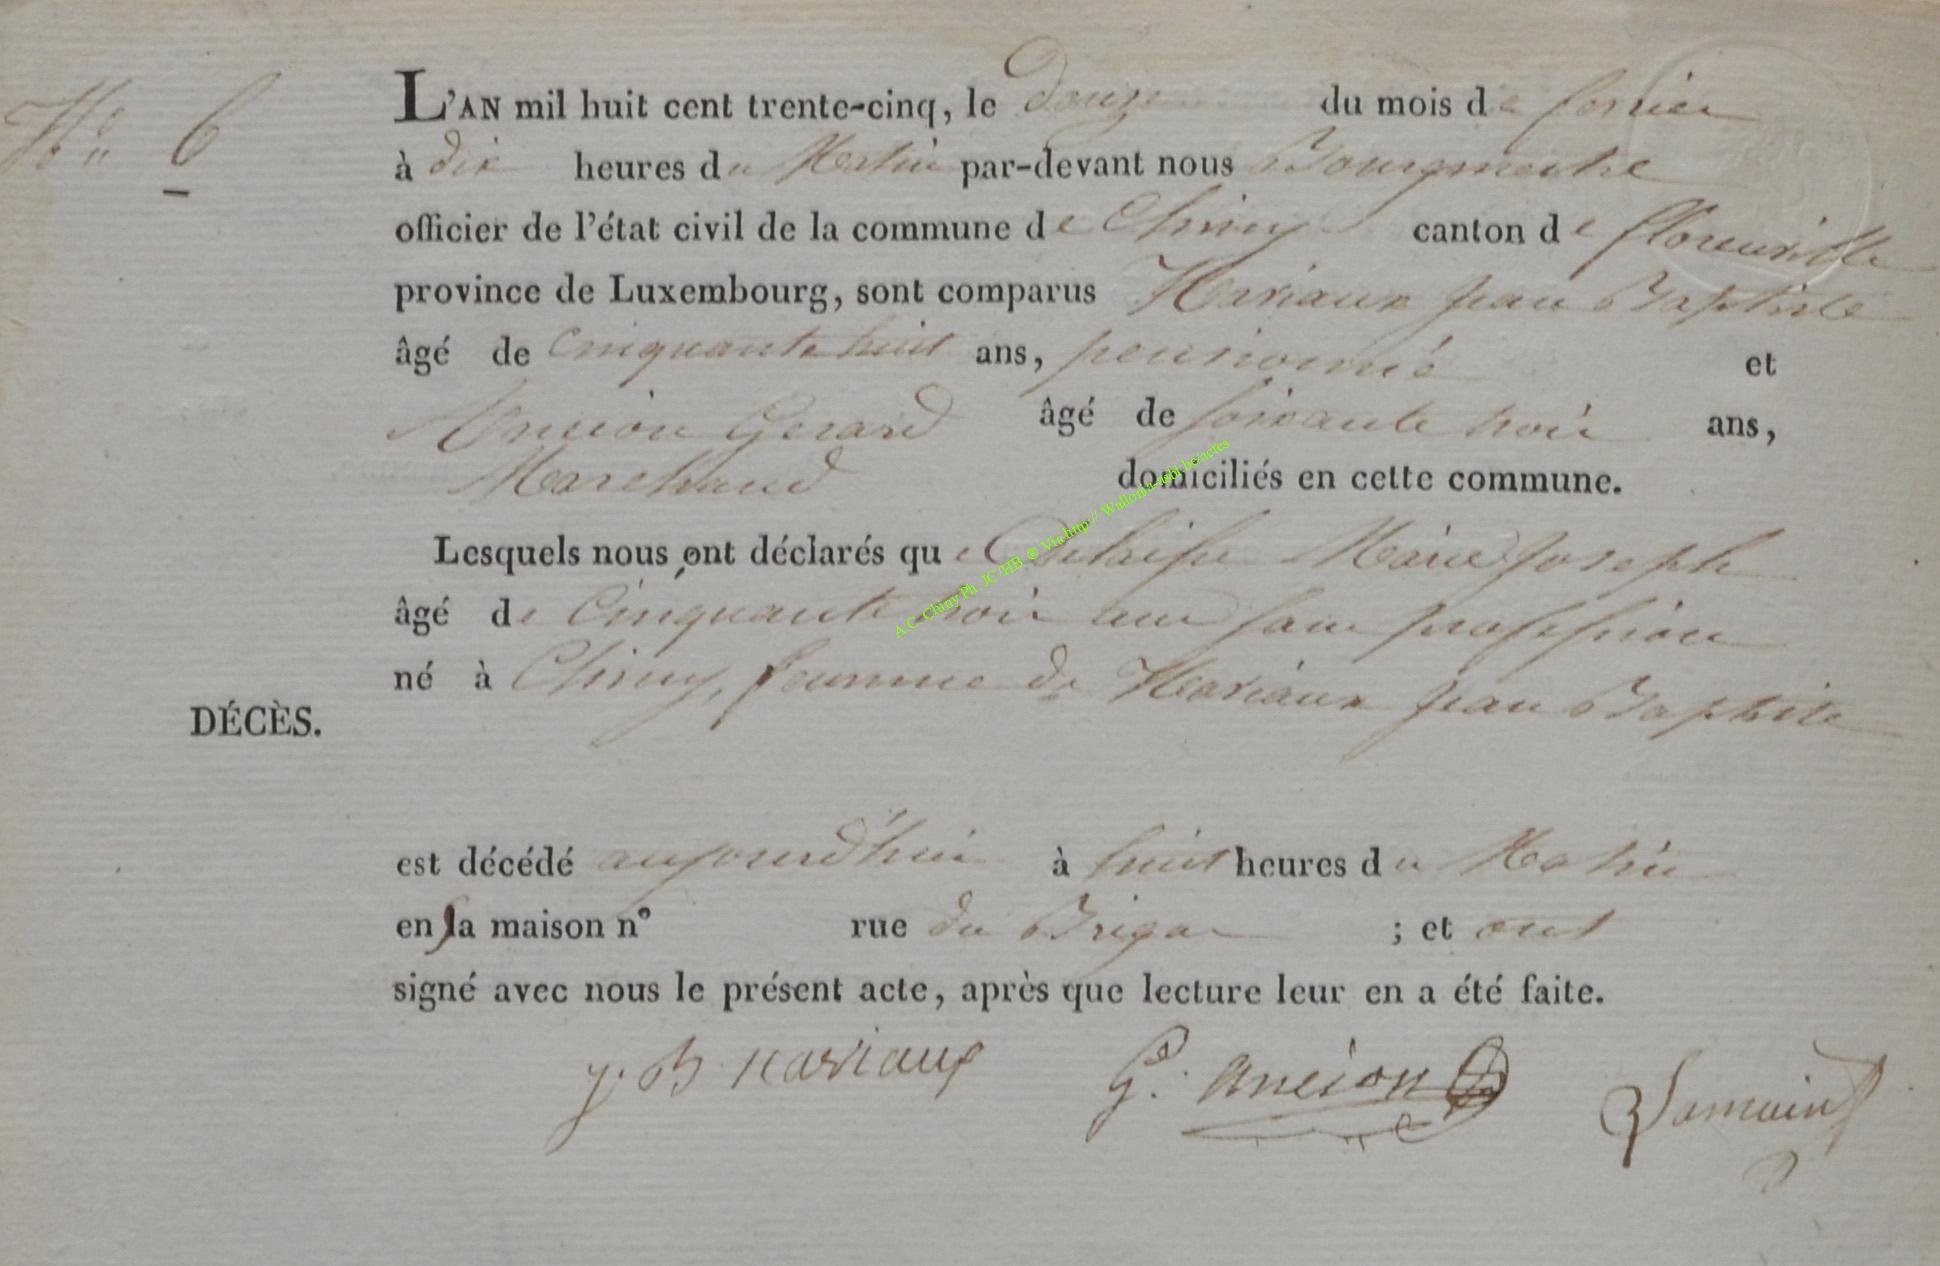 N° 6
L'AN mil huit cent trente-cinq, le douze du mois de fevrier
à dix heures du Matin par-devant nous Bourgmestre
officier de l'état civil de la commune de Chiny canton de florenville
province de Luxembourg, sont comparus Hariaux jean Baptiste
âgé de Cinquante huit ans, pensionné et
Ancion Gerard âgé de soixante trois ans,
Marchand domiciliés en cette commune.
Lesquels nous ont déclarés que Marie Joseph
âgé de Cinquante trois ans sans profession
né à Chiny, femme de Hariaux jean Baptiste
DÉCÈS.
est décédé aujourd'hui à huit heures du Matin
en sa maison n° rue du ; et ont
signé avec nous le présent acte, après que lecture leur en a été faite.
J. B. hariaux G. ancion
A C -Chiny Ph JC-HB @ Via http:// Wallonia-asbl.be/actes